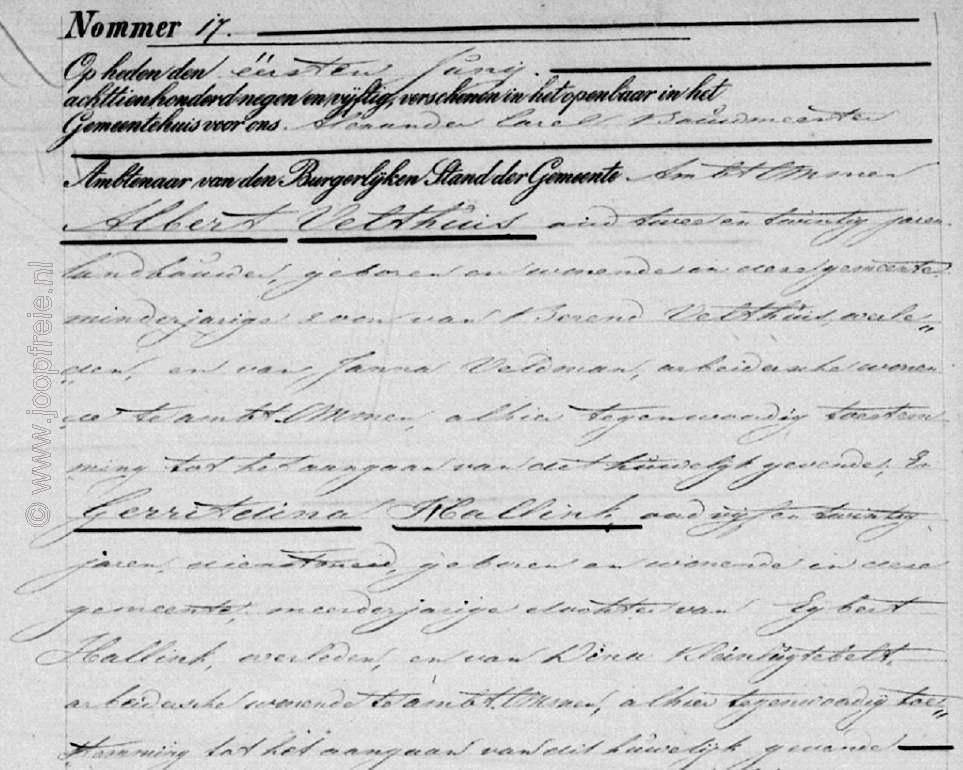 Nommer 17.
Op heden den eersten Junij
achttienhonderd negen en vijftig, verschenen in het openbaar in het
Gemeentehuis voor ons Alexander Carel Bouwmeester
Ambtenaar van den Burgerlijken Stand der Gemeente Ambt Ommen
Albert Velthuis oud twee en twintig jaren
landbouwer, geboren en wonende in deze gemeente
minderjarige zoon van Berend Velthuis, overle„
„den, en van Janna Veldman, arbeidersche wonen
de te ambt Ommen, alhier tegenwoordig toestem
ming tot het aangaan van dit huwelijk gevende, En
Gerritdina Hallink oud vijf en twintig
jaren, dienstmeid, geboren en wonende in deze
gemeente, meerderjarige dochter van Egbert
Hallink, overleden, en van Dina
arbeidersche wonende te ambt Ommen, alhier tegenwoordig toe„
stemming tot het aangaan van dit huwelijk gevende
© www.joopfreie.nl